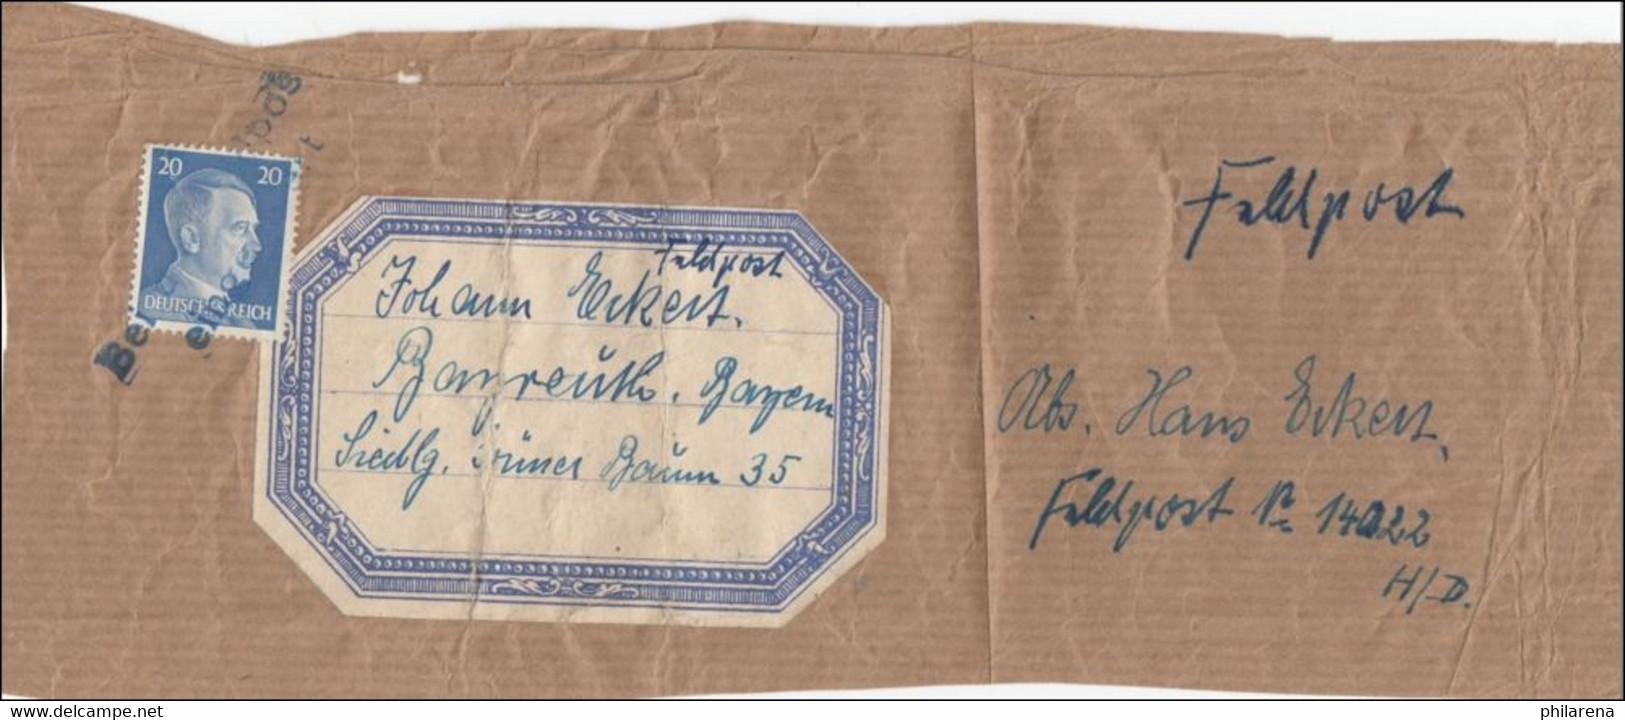 20 20
DEUTSCHES REICH
Feldpost
Johann Eckert.
Bayreuth. Bayern
Siedlg. Grüner Baum 35
Feldpost
Abs. Hans Eckert.
Feldpost Nr 14022
H/D.
www.delcampe.net
philarena